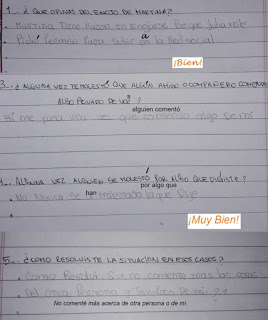 1... ¿ QUE OPINAS DEL ENOJO DE MARTINA?
Martina Tiene Razon en Enojarse Porque Julia nole
Pidio Permiso Para Subir a la Red social
¡Bien!
3... ¿ ALGUNA VEZ TE MOLESTÓ QUE ALGÚN AMIGO O COMPAÑERO COMENTARA
ALGO PRIVADO DE VOZ?
alguien comentó
Si me paso una vez que comentio algo de mi
4... ALGUNA VEZ ALGUIEN SE MOLESTÓ POR ALGO QUE DIJISTE?
por algo que
No Nunca se molestado la que Dije
han
¡Muy Bien!
5... ¿COMO RESOLVISTE LA SITUACIÓN EN ESOS CASOS?
Como Resolvi Que no comente mas las cosas
Del otra Persona y tampoco De mi
No comenté más acerca de otra persona o de mi.